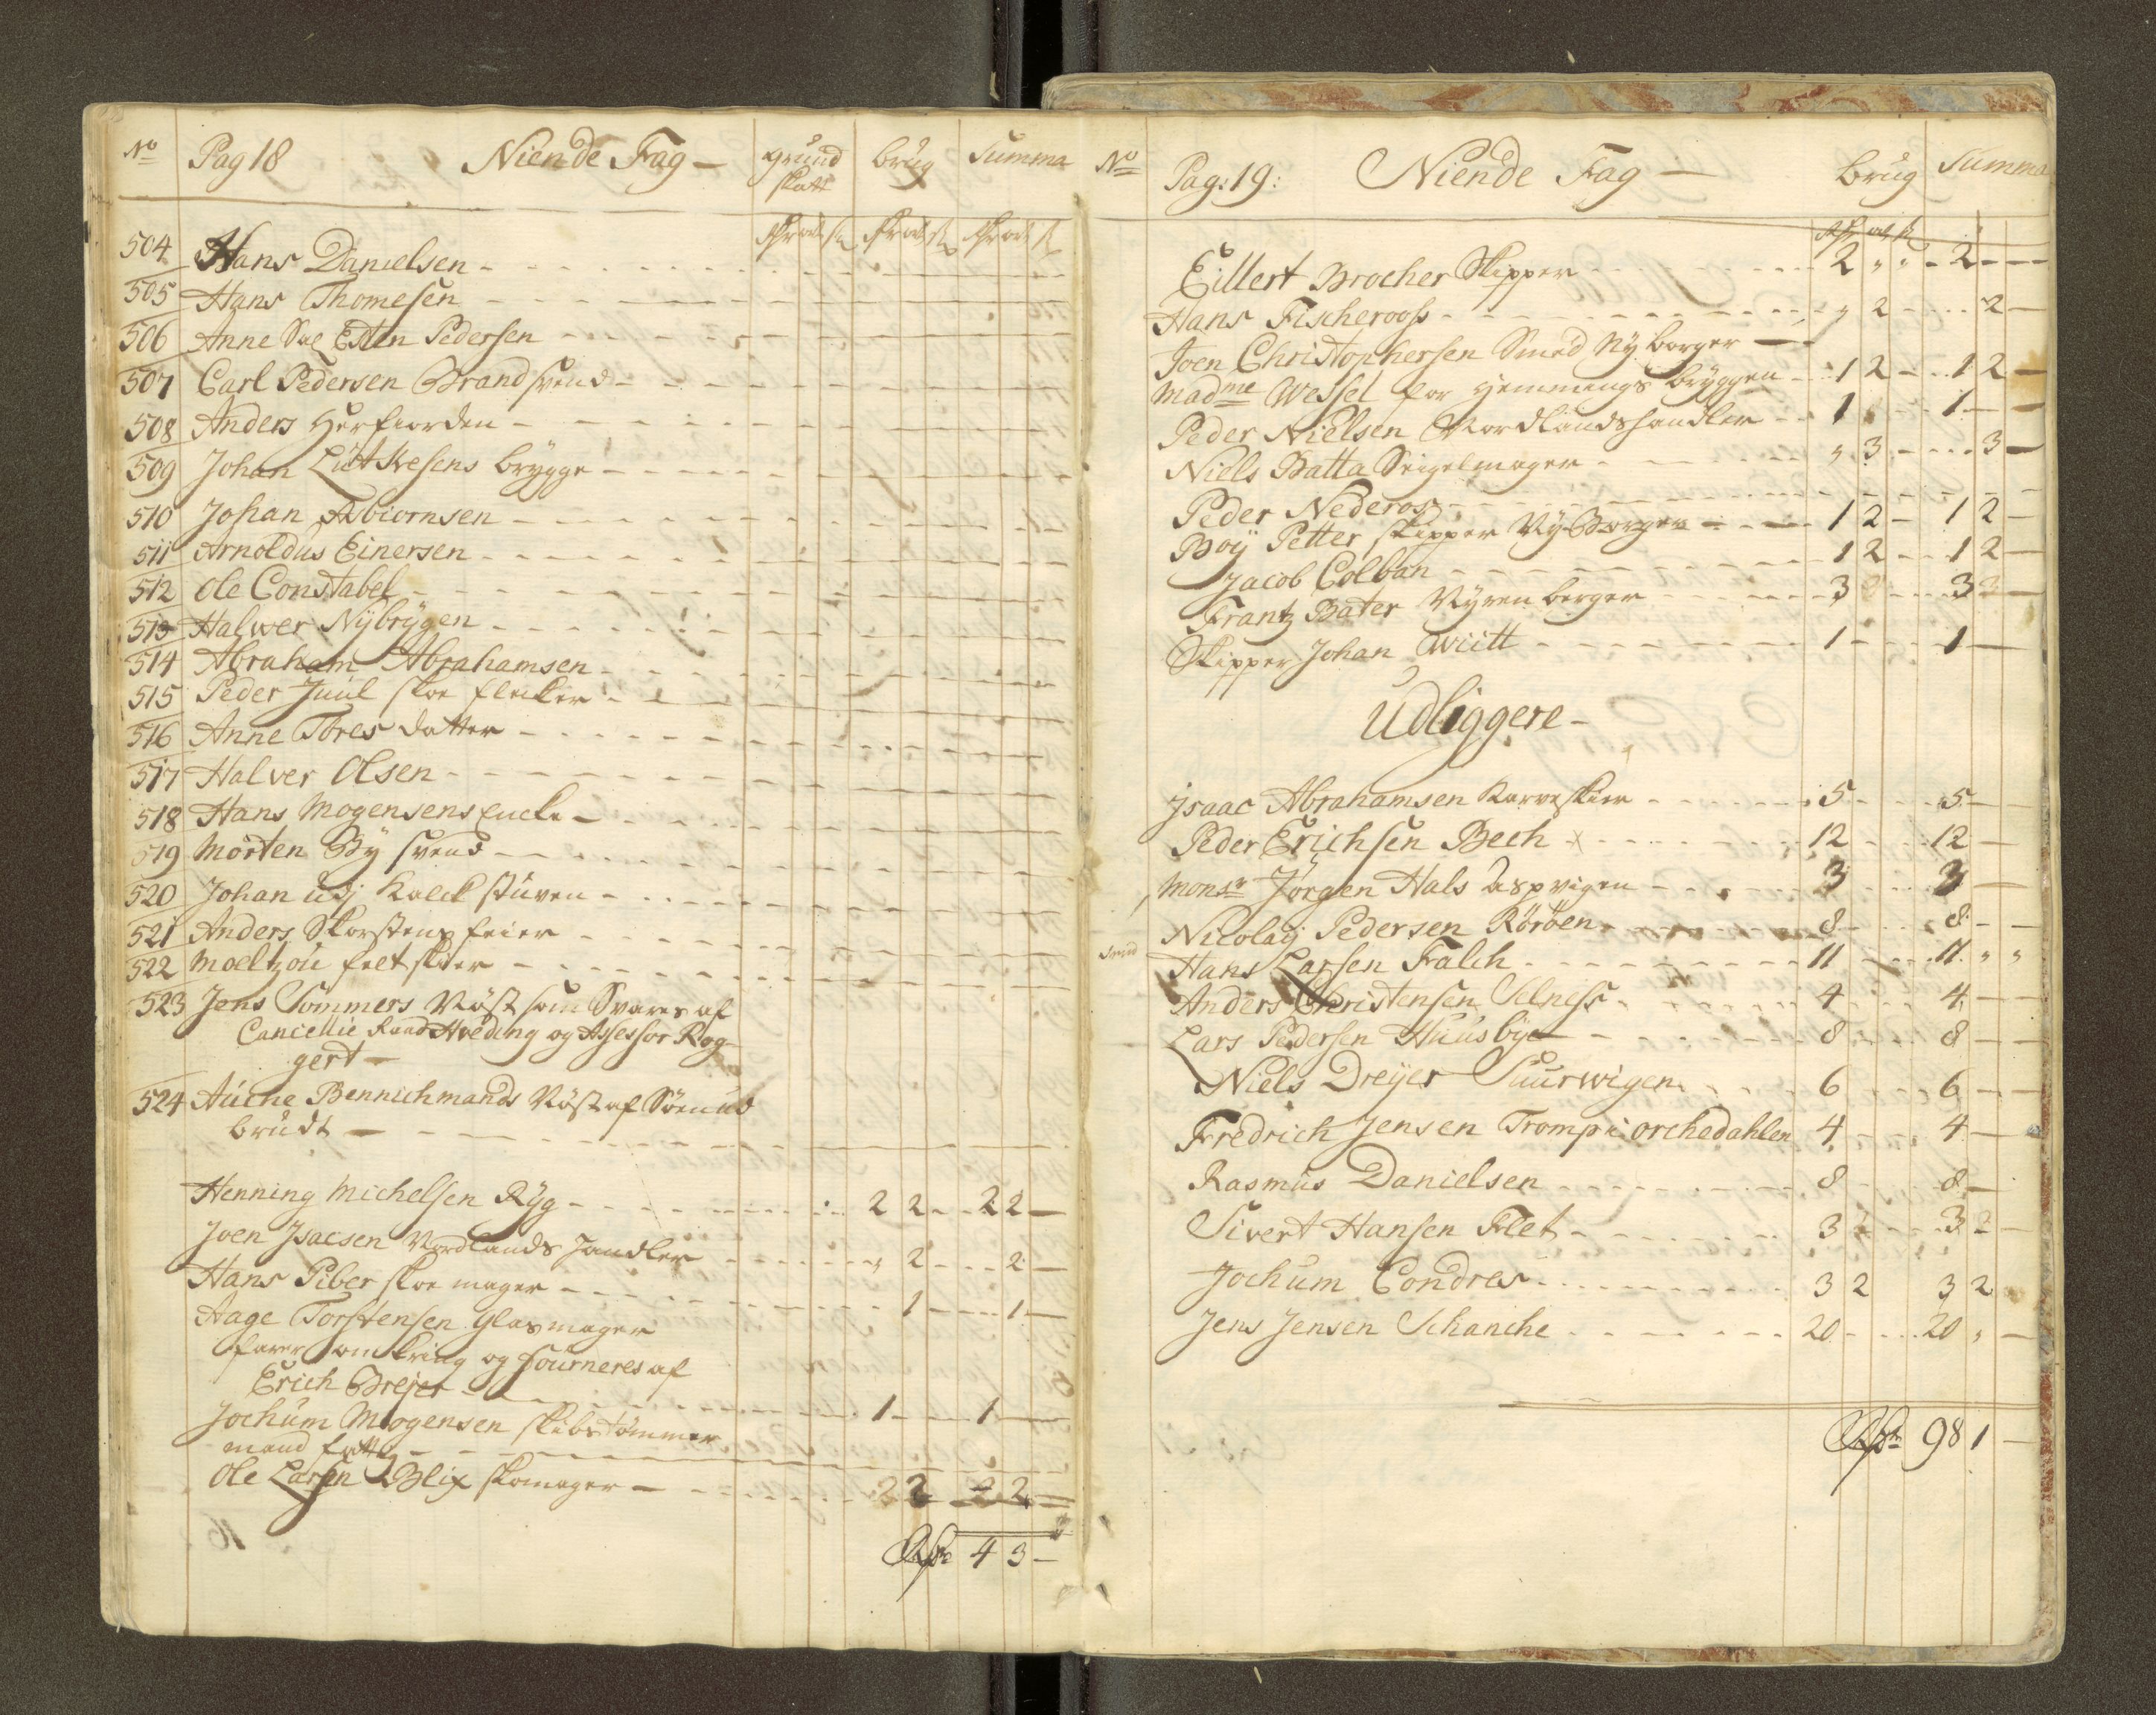 No Pag 18 Niende Fag - grund brug Summa
skatt
504 Hans Danielsen
505 Hans Thomesen
506 Anne Sal Esten Pedersen
507 Carl Pedersen Brandsvend
508 Anders Herfiorden
509 Johan Lütkesens brygge
510 Johan Asbiornsen
511 Arnoldus Einersen
512 Ole Constabel
513 Halwer Nÿbrÿgen
514 Abraham Abrahamsen
515 Peder Juul skoe flicker
516 Anne Tores datter
517 Halver Olsen
518 Hans Mogensens Encke
519 Morten Bÿ svend
520 Johan udj Kalck stuven
521 Anders Skorstens feier
522 Moeltzou feltskier
523 Jens Sommers Nøst som Svares af
Cancellie Raad Hveding og Assessor Rog-
gert -
524 Auche Bennichmands Nøst af
brudt -
Henning Michelsen Rÿg 2 2 2 2 -
Joen Jsacsen Nordlands handler " 2 2 -
Hans Piber skoe mager 1 1 -
Aage Torstensen Glasmager
farer omkring og fourneres af
Erich Breyer 1 1 -
Jochum Mogensen skibstømmer
mand fattig
Ole Larsen Blix skomager - 2 2 2 2
Rdr 4 3 -
No Pag: 19: Niende Fag - brug Summa
Eillert Brocher Skipper 2 " " 2 - -
Hans Fischerooss " 2 2 -
Joen Christophersen Smed Nÿ borger -
Madme Wessel for Hemmings brÿggen 1 2 1 2 -
Peder Nielsen Nordlandshandler 1 1 - -
Niels Batta Seigelmager " 3 3 -
Peder Nederos
Boÿ Petter skipper Nÿ Borger 1 2 - 1 2 -
Jacob Colban 1 2 1 2 -
Frantz Bater Nÿren borger 3 3 -
Skipper Johan Witt 1 1 -
Udliggere -
Jsaac Abrahamsen Karveskier 5 5 -
Peder Erichsen Bech x 12 12 -
Monsr Jørgen Hals Aspvigen 3 3 -
Nicolaÿ Pedersen Röröen 8 8 -
Smed Hans Larsen Falch 11 11 " "
Anders Christensen Selness 4 4 -
Lars Pedersen Huusbÿe 8 8 -
Niels Dreÿer Suurwigen 6 6 -
Fredrich Jensen Tromp i orchedahlen 4 4 -
Rasmus Danielsen 8 8 -
Sivert Hansen Flet 3 3 -
Jochum Condres 3 2 3 2
Jens Jensen Schanche 20 20 " -
Rdr 98 1 -